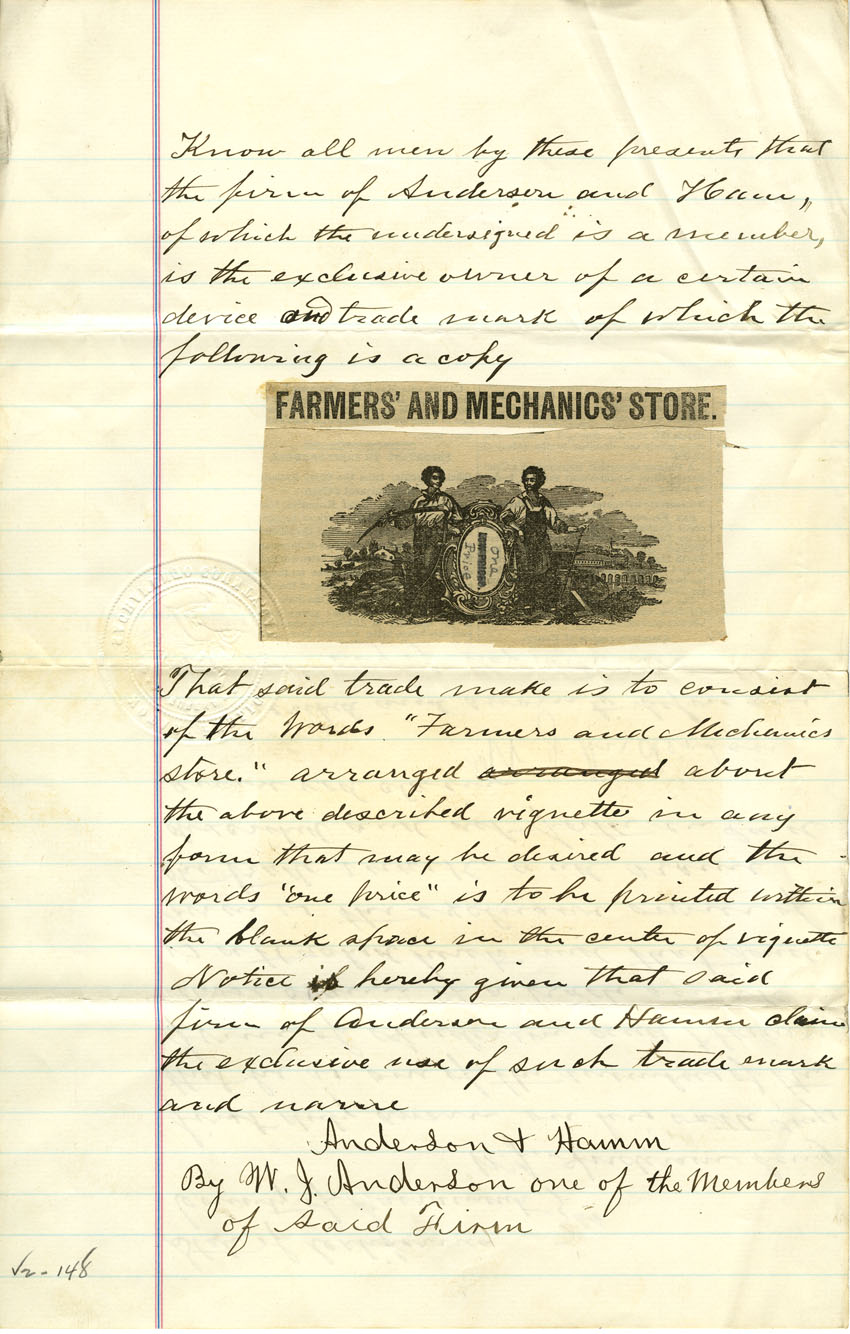 Know all men by these presents that
the firm of Anderson and Ham,,
of which the undersigned is a member,
is the exclusive owner of a certain
device and trade mark of which the
following is a copy
FARMERS' AND MECHANICS' STORE.
one
Price
That said trade make is to consist
of the Words "Farmers and Mechanics
store." arranged arranged about
the above described vignette in any
form that may be desired and the
words "one price" is to be printed within
the blank space in the center of vignette
Notice is hereby given that said
firm of Anderson and Hamm claim
the exclusive use of such trade mark
and name
Anderson & Hamm
By W. J. Anderson one of the Members
of said Firm